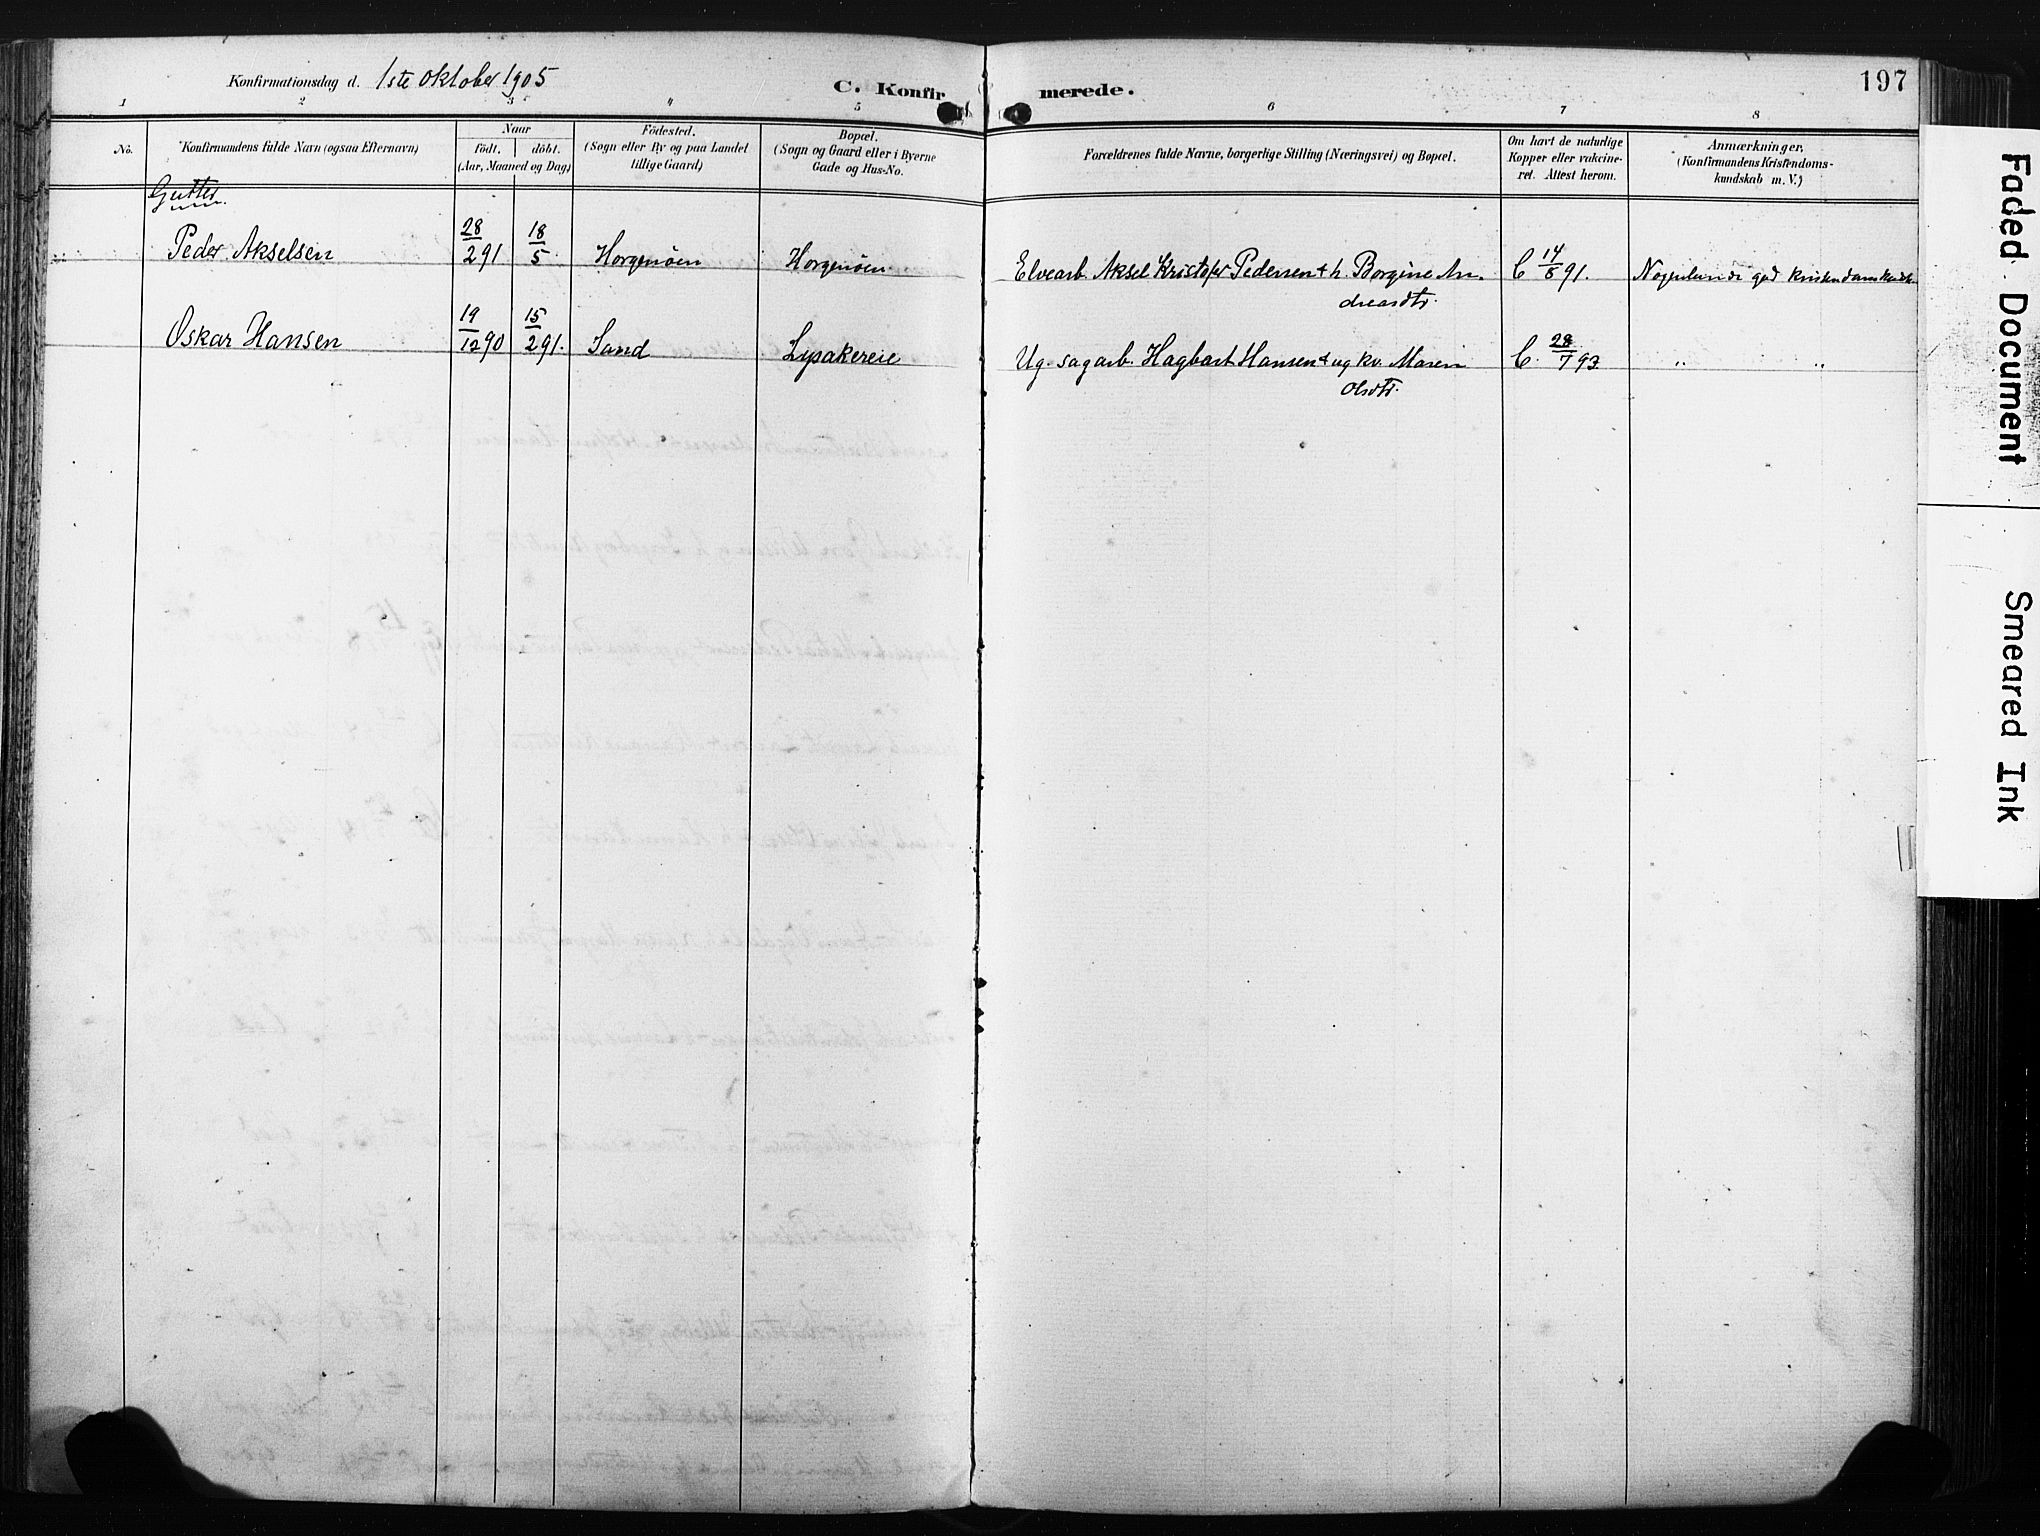 Konfirmationsdag d. 1ste oktober 1905
C. Konfirmerede.
197
1 2 3 " 5 6 7 8
No.
Konfirmandens fulde Navn (ogsaa Efternavn)
Naar
födt. döbt.
(Aar, Maaned og Dag)
Födested.
(Sogn eller By og paa Landet
tillige Gaard)
Bopæl.
(Sogn og Gaard eller i Byerne
Gade og Hus-No.
Forældrenes fulde Navne, borgerlige Stilling (Næringsvei) og Bopæl.
Om havt de naturlige
Kopper eller vakcine-
ret. Attest herom.
Anmærkninger,
(Konfirmandens Kristendoms-
kundskab m. V.)
Gutter
Peder Akselsen 28/2 91 18/5 Horgenöen Horgenöen Elvearb. Aksel Kristofer Pedersen + h. Borgine An-
dreasdtr. C 14/8 91. Nogenlunde god
Oskar Hansen 19/12 90 15/2 91. Sand Lysakereie Ug. sagarb. Hagbart Hansen + ug kv. Maren
Olsdtr. C. 28/7 93. " "
Faded Document
Smeared Ink